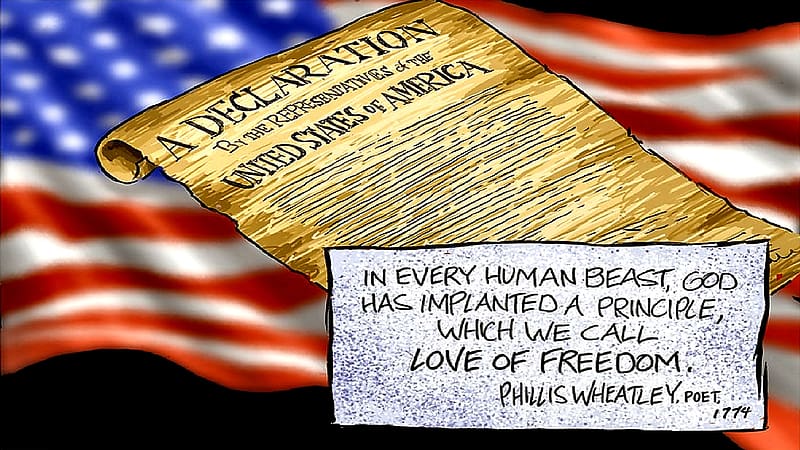 A DECLARATION
BY THE REPRESENTATIVES of THE
UNITED STATES OF AMERICA
IN EVERY HUMAN BEAST, GOD
HAS IMPLANTED A PRINCIPLE,
WHICH WE CALL
LOVE OF FREEDOM.
PHILLIS WHEATLEY. POET.
1774